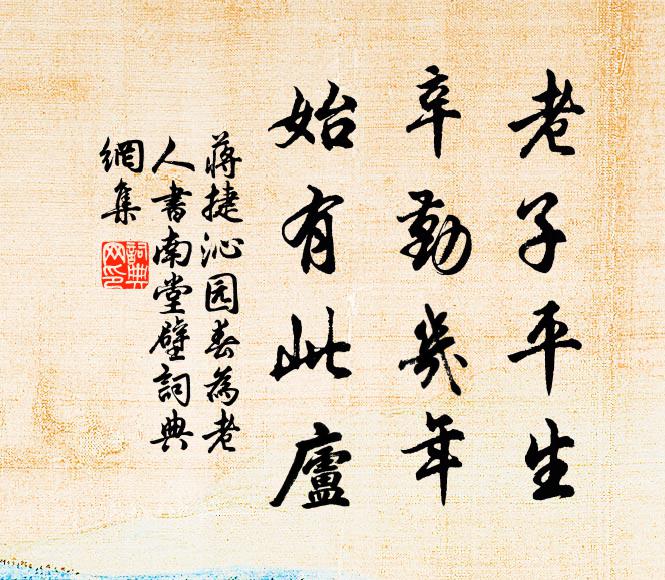 老子平生
辛勤幾年
始有此廬
蔣捷沁园春為老
人書南堂壁詞典
網集
詞典